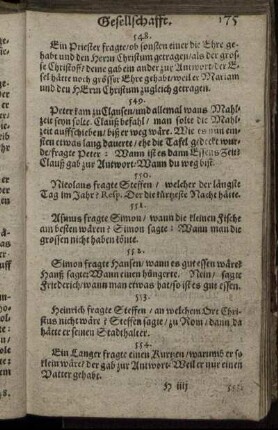 Gesellschafft. 175
548.
Ein Priester fragte/ ob sonsten einer die Ehre ge-
habt und den Herrn Christum getragen/ als der gros-
se Christoff/ deme gab ein ander zur Antwort: der E-
sel hätte noch grösser Ehre gehabt/ weil er Mariam
und den HErrn Christum zugleich getragen.
549.
Peter kam zu Clausen/ und allemal wans Mahl-
zeit seyn solte. Clauß befahl/ man solte die Mahl-
zeit auffschieben/ biß er weg wäre. Wie es nun ein-
sten etwas lang dauerte/ ehe die Tafel gedeckt wur-
de/ fragte Peter: Wann ist es dann Essens Zeit?
Clauß gab zur Antwort: Wann du weg bist.
550.
Nicolaus fragte Steffen/ welcher der längste
Tag im Jahr? Resp. Der die kürtzeste Nacht hätte.
551.
Asinus fragte Simon/ wann die kleinen Fische
am besten wären? Simon sagte: Wann man die
grossen nicht haben könte.
552.
Simon fragte Hansen/ wann es gut essen wäre?
Hanß sagte: Wann einen hüngerte. Nein/ sagte
Friederich/ wann man etwas hat/ so ist es gut essen.
553.
Heinrich fragte Steffen/ an welchem Ort Chri-
stus nicht wäre? Steffen sagte/ zu Rom/ dann da
hätte er seinen Stadthalter.
554.
Ein Langer fragte einen Kurtzen/ warumb er so
klein wäre/ der gab zur Antwort: Weil er nur einen
Vatter gehabt.
H iiij